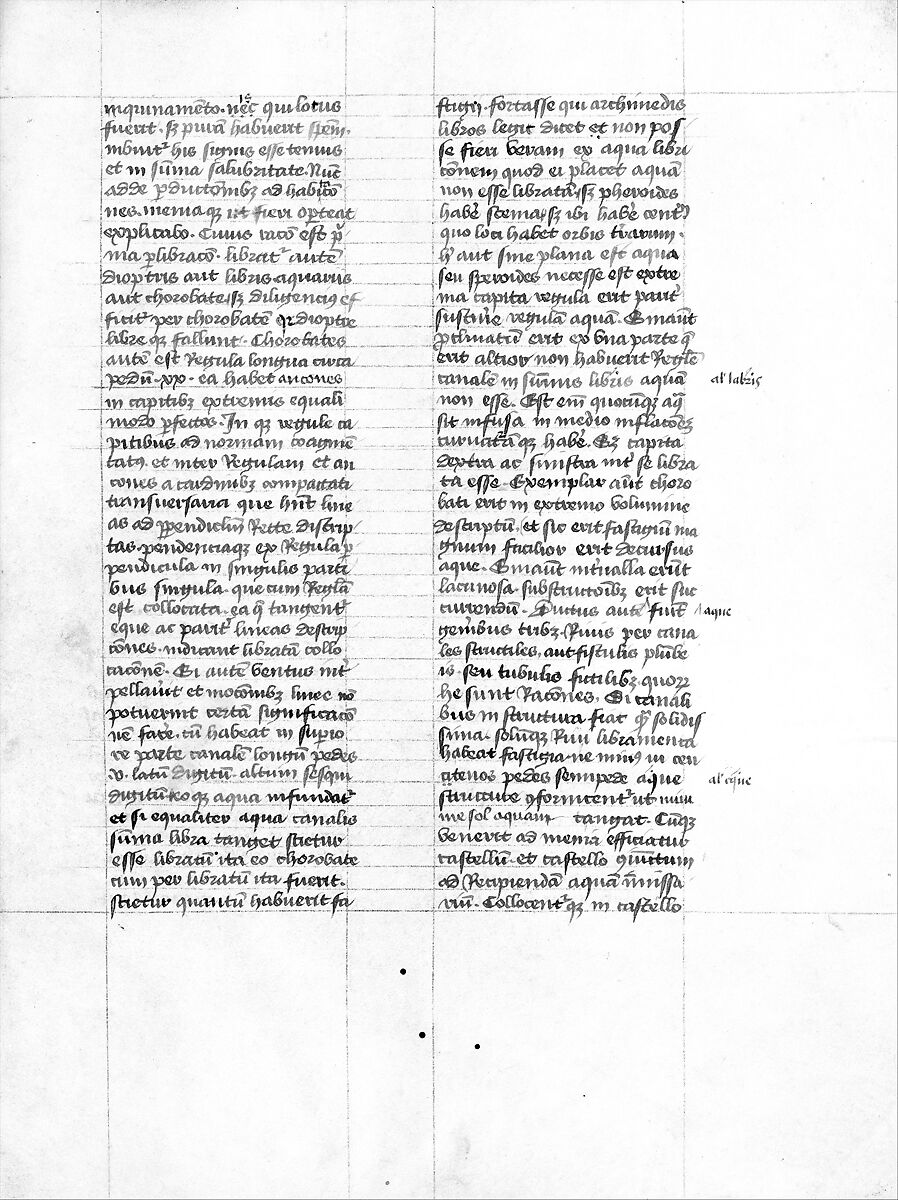 inquinamēto. nec̄ qui locus
fuerit. sꝫ purā habuerit spem̄.
inbuit᷑ his signis esse tenuis
et in sūma salubritate. Nūc
adde ꝑductōnibꝫ ad habitaō
nes. meniaqꝫ ut fieri oꝑteat
explicabo. Cuius racō est p̄
ma ꝑlibracō. librat᷑ autē
dioptris aut libris aquariis
aut chorobate. sꝫ diligencius ef
ficit᷑ per chorobatē qꝛ dioptre
libre qꝫ fallunt. Chorobates
autē est Regula longua circa
pedū .xx. ea habet ancones
in capitibꝫ extremis equali
modo ꝑfectos. In qꝫ regule ca
pitibus ad normam coagmē
tatꝰ. et inter Regulam et an
cones a cardinibꝫ compactati
transuersaria que hn̄t line
as ad ꝑpendiclm̄ Recte discrip
tas. pendenciaqꝫ ex Regula ꝑ
pendicula in singulis parti
bus singula. que cum Reglā
est collocata. ea q̄ tangent᷑
eque ac parit᷑ lineas descrip
cōnes. indicant libratā collo
cacōnē. Si autē ventus int᷑
pellauit et motōnibꝫ linee nō
potuerint certā significacō
nē facē. tū habeat in suꝑio
re parte canalē longū pedes
.v. latū digitū. altum sesqui
digitū. eo qꝫ aqua infundat᷑
et si equaliter aqua canalis
sūma libra tanget scietur
esse libratū ita eo chorobate
cum per libratū ita fuerit.
scietur quantū habuerit fa
stigij. fortasse qui archimedis
libros legit dicet et non pos
se fieri veram ex aqua libra
cōnem quod ei placet aquā
non esse libratā. sꝫ spheroides
habē scema. sꝫ ibi habē cent᷑
quo loci habet orbis trarum.
h̄ aut sine plana est aqua
seu speroides necesse est extre
ma capita regula erit parit᷑
sustinē regulā aquā. Sin aūt
ꝓclinatū erit ex vna parte q̄
erit altior non habuerit Reglē
canalē in sūmis libris aquā
al' labris
non esse. Est em̄ quocūqꝫ aq̄
sit infusa in medio inflacōeꝫ
curuaturā qꝫ habē. Sꝫ capita
dextra ac sinistra int᷑ se libra
ta esse. Exemplar aūt choro
bati erit in extremo volumine
descriptū. et sic erit fastigiū ma
gnum facilior erit decursus
aque. Sin aūt int᷑ualla erūt
lacunosa. substructōibꝫ erit suc
currendū. Ductus autē fiūt
aque
generibus tribꝫ. Riuis per cana
les structiles, aut fistulis plūbe
is. seu tubulis fictilibꝫ quorꝝ
he sunt Racōnes. Si canali
bus in structura fiat qᷓ solidis
sima. solūqꝫ Riui libramenta
habeat fastigia. ne minꝰ in cen
ctenos pedes semipede aque
al' eque
structure ꝯfornicent᷑ ut mini
me sol aquam tangat. Cūqꝫ
venerit ad menia efficiatur
castellū. et castello ꝯiūctum
ad Recipiendā aquā īmissa
riū. Collocent᷑ qꝫ in castello